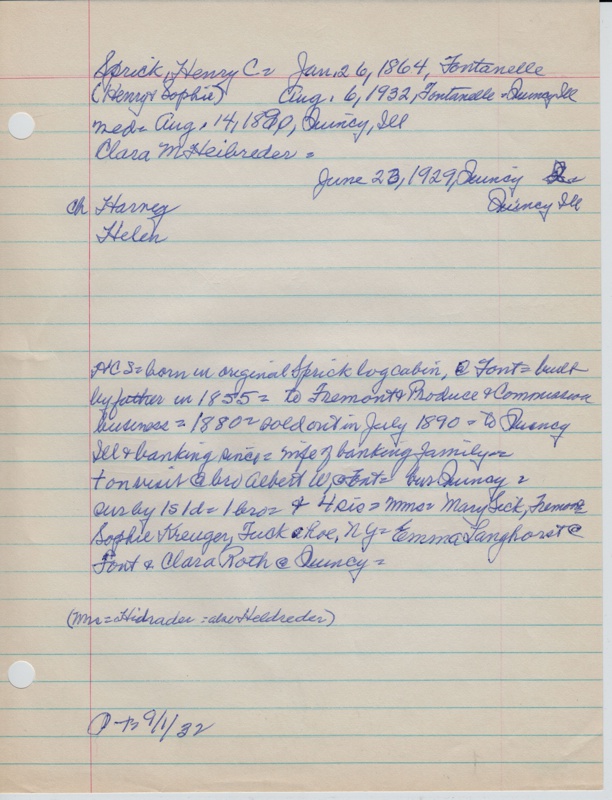 Sprick, Henry C = Jan. 26, 1864, Fontanelle
(Henry & Sophie) Aug. 6, 1932, Fontanelle = Quincy Ill
med = Aug. 14, 1890, Quincy, Ill
Clara M Heibreder =
June 23, 1929, Quincy
Quincy Ill
ch Harney
Helen
HCS = born in original Sprick log cabin, @ Font = built
by father in 1855 = to Fremont & Produce & Commission
business = 1880 = sold out in July 1890 = to Quincy
Ill & banking since = wife of banking family =
+ on visit @ bro Albert W, @ Font = bur Quincy =
sur by 1s 1d = 1 bro = & 4 sis = Mmes = Mary Sick, Fremont
Sophie Kreuger, Tuckahoe, NY = Emma Langhorst @
Font & Clara Roth @ Quincy =
(Mrs = Hidrader = also Heldreder)
9/1/32